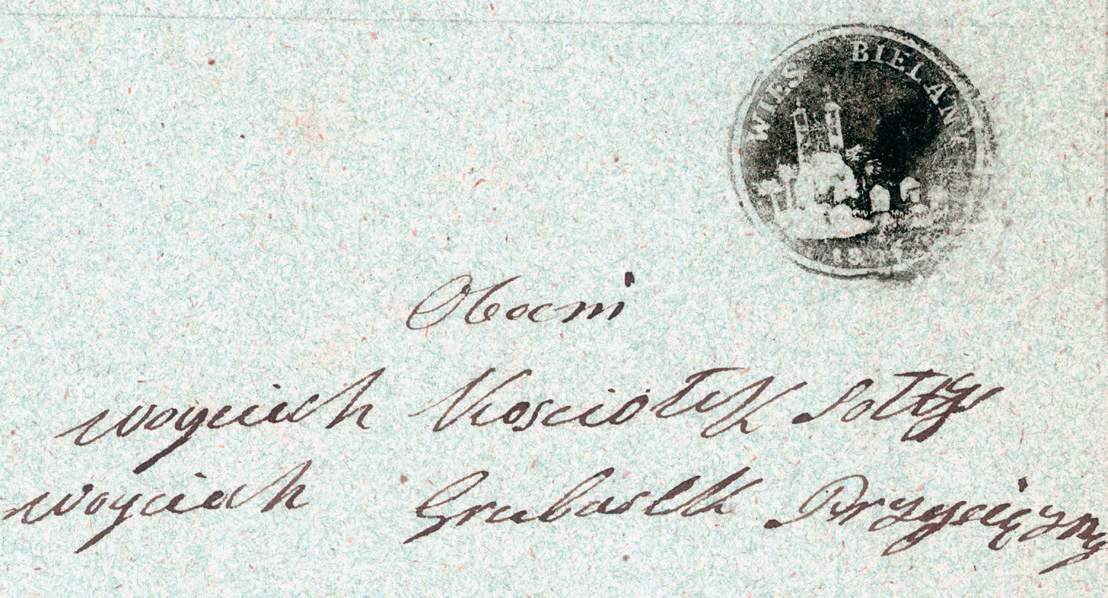 WIES BIELANY
Obecni
woyciech Kosciołek Sołtys
woyciech Grubasek Przysiężny